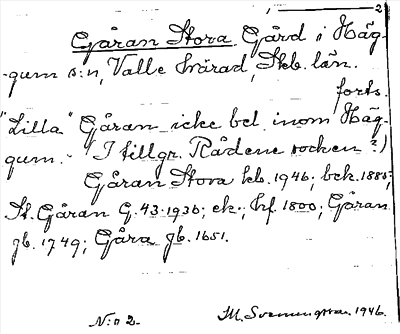 2
Gåran Stora. Gård i Häg-
-gum s:n, Valle härad, Skb. län.
forts.
"Lilla" Gåran icke bel. inom Häg-
gum. (I tillgr. Rådene socken?)
Gåran Stora kb. 1946; bck. 1885;
St. Gåran G. 43. 1930; ek.; hf. 1800; Gåran
jb. 1749; Gåra jb. 1651.
N:o 2. M. 1946.